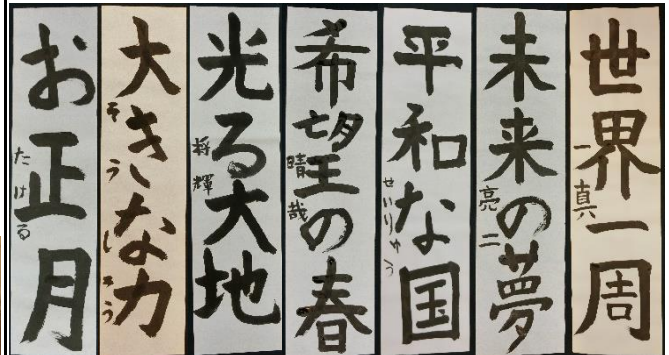 世界一周
一真
未来の夢
亮二
平和な国
せいりゅう
希望の春
晴哉
光る大地
将輝
大きな力
そうしろう
お正月
たける